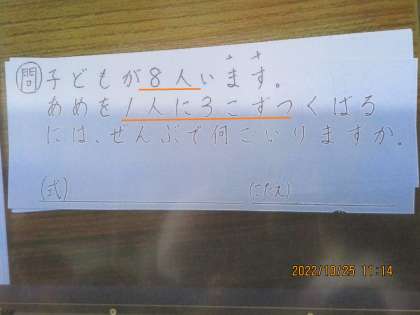 問 子どもが8人います。
あめを1人に3こずつくばる
には、ぜんぶで何こいりますか。
(式) (こたえ)
2022/10/25 11:14